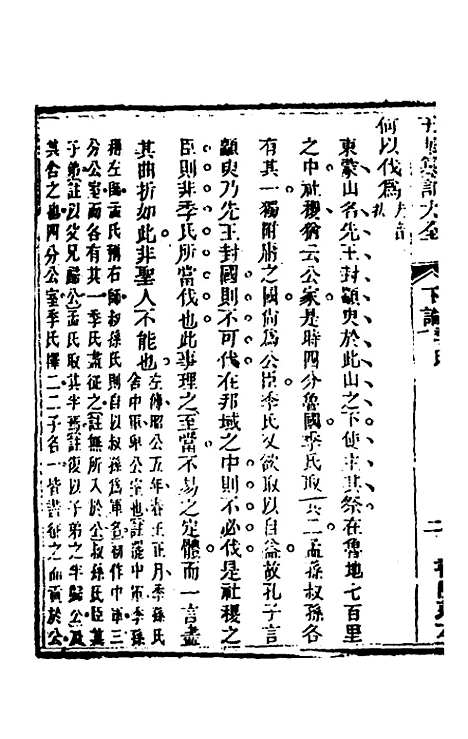 何以伐爲
東蒙山名先王封顓臾於此山之下使主其祭在魯地七百里
之中社稷猶云公家是時四分魯國季氏取其二孟孫叔孫各
有其一獨附庸之國尚爲公臣季氏又欲取以自益故孔子言
顓臾乃先王封國則不可伐在邦域之中則不必伐是社稷之
臣則非季氏所當伐也此事理之至當不易之定體而一言盡
其曲折如此非聖人不能也
左傳昭公五年春王正月季孫氏
舍中軍卑公室也註罷中軍季孫
稱左師孟氏稱右師叔孫氏則自以叔孫爲軍名初作中軍三
分公室而各有其一季氏盡征之註無所入於公叔孫氏臣其
子弟註以父兄歸公孟氏取其半焉註復以子弟之半歸公及
其舍之也四分公室季氏擇二二子各一皆盡征之而貢於公